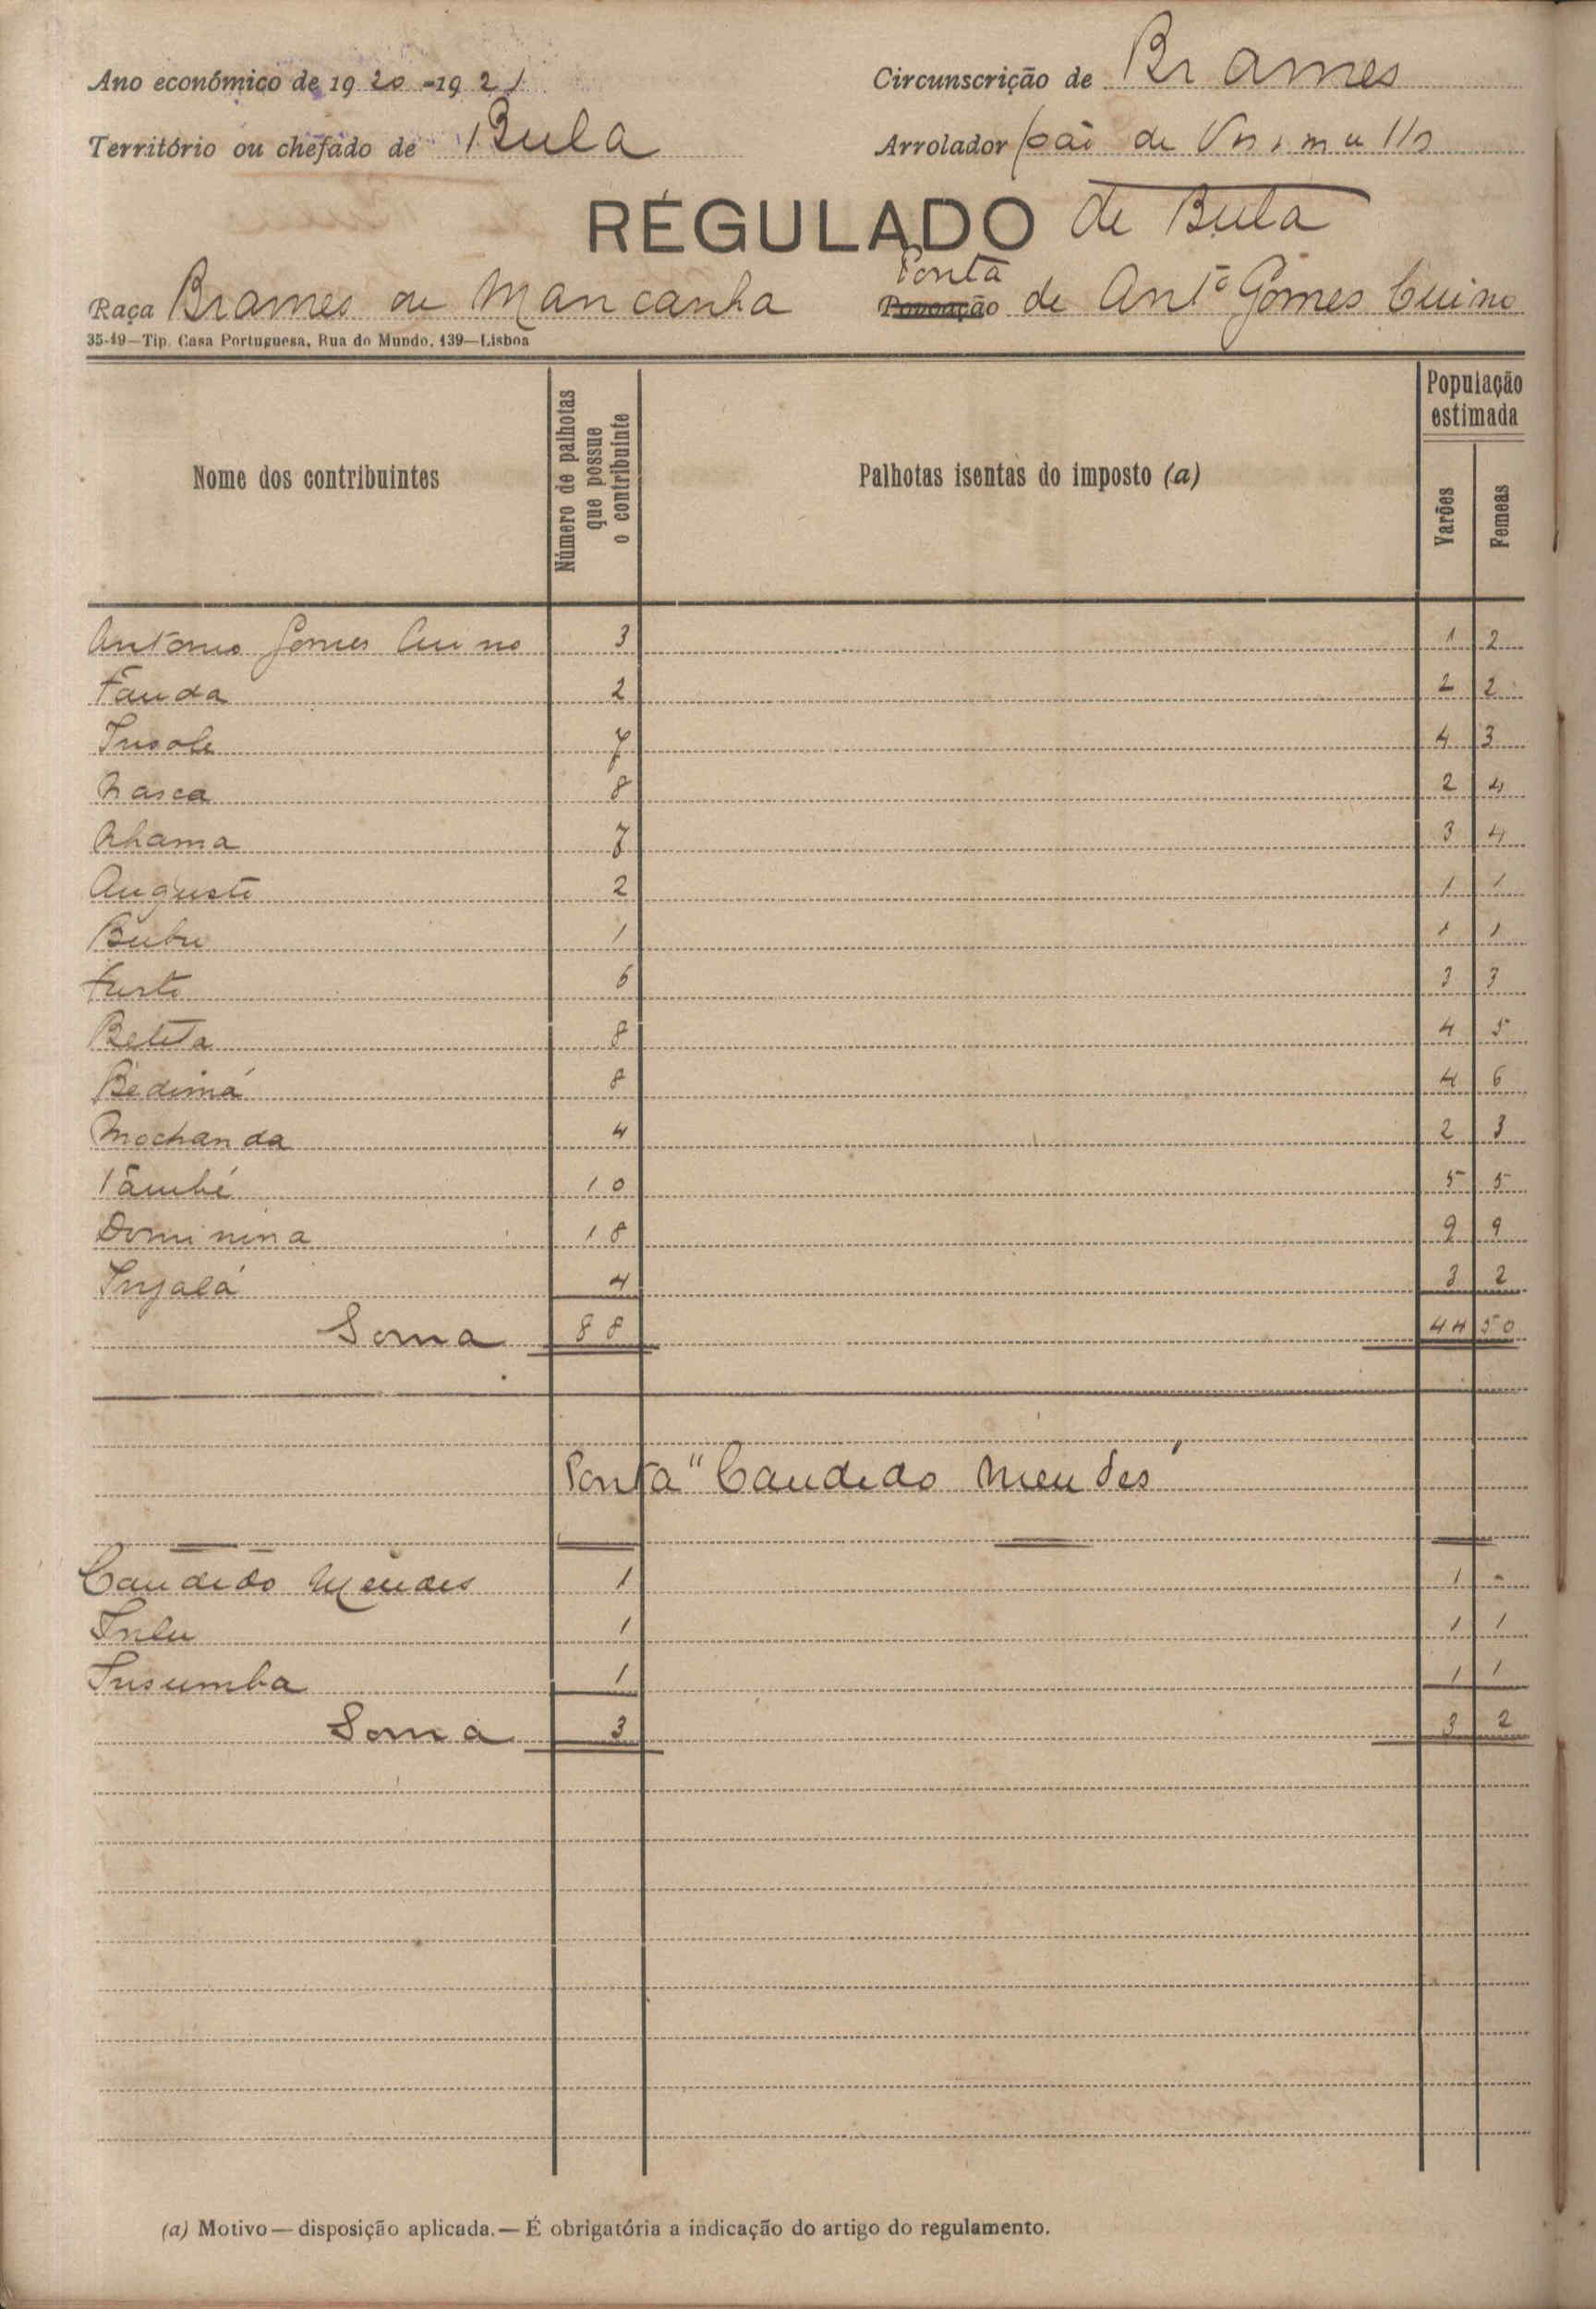 Ano económico de 1920-1921
Circunscrição de Brames
Território ou chefado de Bula
Arrolador João de
RÉGULADO de Bula
Ponta
Raça Brames ou Mancanha
Povoação de Antº Gomes Cuino
35-19—Tip. Casa Portuguesa, Rua do Mundo, 139—Lisboa
Nome dos contribuintes
Número de palhotas que possue o contribuinte
Palhotas isentas do imposto (a)
População estimada
Varões
Femeas
Antonio Gomes Cuino 3 1 2
Fauda 2 2 2
Insole 7 4 3
Nasca 8 2 4
Nhama 7 3 4
Augusto 2 1 1
Bubu 1 1 1
6 3 3
Beleta 8 4 5
Bedimá 8 4 6
Mochanda 4 2 3
10 5 5
Dominina 18 9 9
Injalá 4 3 2
Soma 88 44 50
Ponta "Candido Mendes"
Candido Mendes 1 1 -
Inlu 1 1 1
Insumba 1 1 1
Soma 3 3 2
(a) Motivo — disposição aplicada. — É obrigatória a indicação do artigo do regulamento.